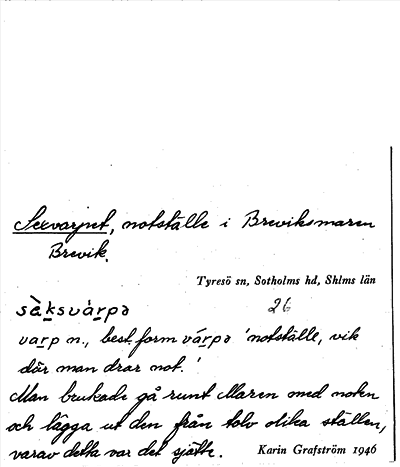 Sexvarpet, notställe i Breviksmaren
Brevik.
Tyresö sn, Sotholms hd, Shlms län
sè̱ksvàrpə 26
varp n., best. form várpə 'notställe, vik
där man drar not.'
Man brukade gå runt Maren med noten
och lägga ut den från tolv olika ställen,
varav detta var det sjätte. Karin Grafström 1946